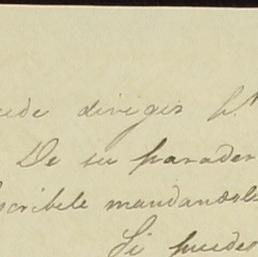 uede dirigir p.r
De su parader
scribele mandandole
Si puedes